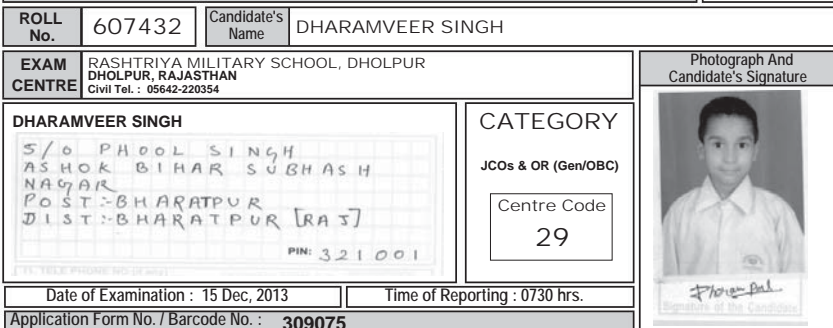 ROLL No. 607432 Candidate's Name DHARAMVEER SINGH
EXAM CENTRE
RASHTRIYA MILITARY SCHOOL, DHOLPUR
DHOLPUR, RAJASTHAN
Civil Tel. : 05642-220354
Photograph And
Candidate's Signature
DHARAMVEER SINGH
S/O PHOOL SINGH
ASHOK BIHAR SUBHASH
NAGAR
POST:-BHARATPUR
DIST:-BHARATPUR [RAJ]
PIN: 321001
CATEGORY
JCOs & OR (Gen/OBC)
Centre Code
29
Signature of the Candidate
Date of Examination : 15 Dec, 2013 Time of Reporting : 0730 hrs.
Application Form No. / Barcode No. : 309075